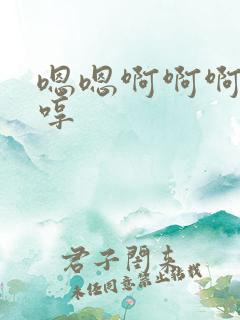 嗯嗯啊啊啊
哼
君子闺来
未经同意禁止转载